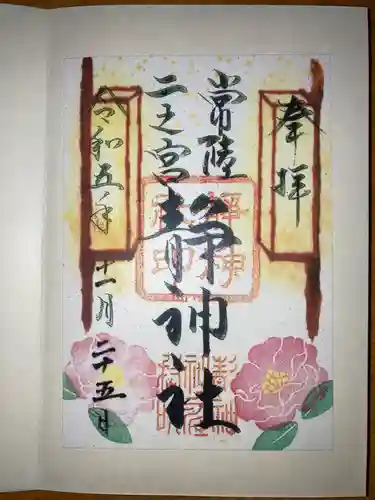 奉拝
常陸
二之宮
靜神社
令和五年十一月二十五日